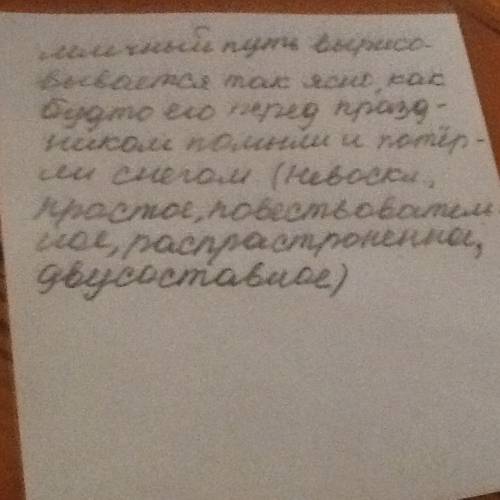 млечный путь вырисо-
вывается так ясно, как
будто его перед празд-
ником помыли и потёр-
ли снегом (Невоскл.,
простое, повествователь
ное, распрастроненное,
двусоставное)